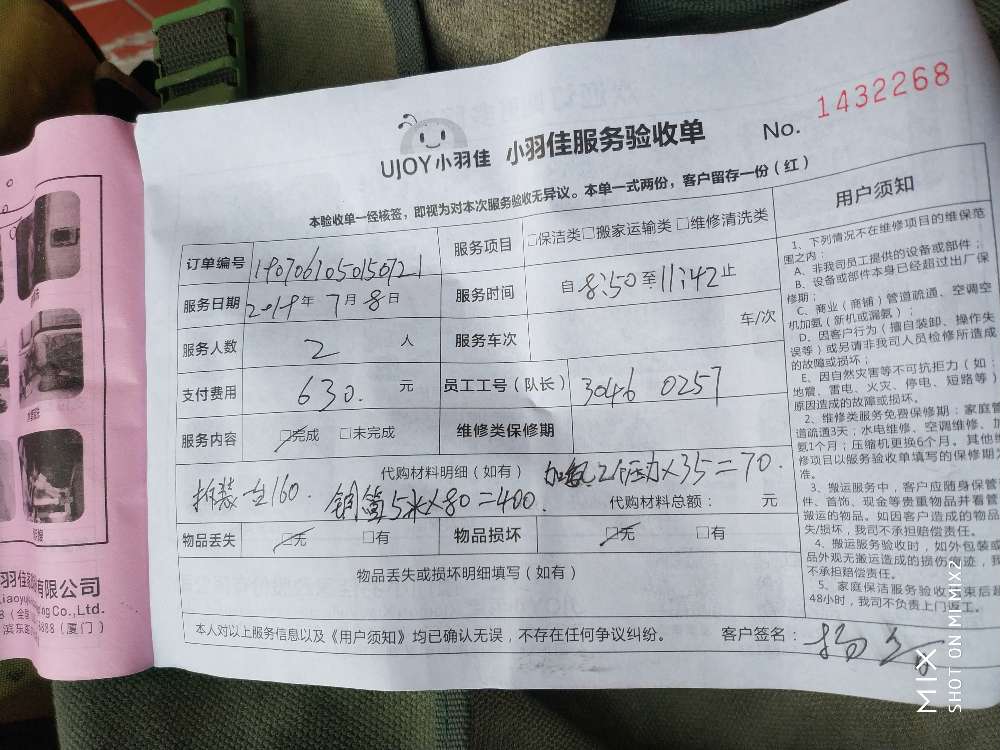 No. 1432268
UJOY小羽佳 小羽佳服务验收单
本验收单一经核签，即视为对本次服务验收无异议。本单一式两份，客户留存一份（红）
订单编号 1907061050150721
服务项目 □保洁类□搬家运输类 □维修清洗类
服务日期 2019年7月8日
服务时间 自8:50至11:42止
服务人数 2 人
服务车次 车/次
支付费用 630. 元
员工工号（队长） 3046 0257
服务内容 □完成 □未完成
维修类保修期
代购材料明细（如有）
拆装一台160.
铜管5米×80=400.
加氟2个压力×35=70.
代购材料总额： 元
物品丢失 □无 □有
物品损坏 □无 □有
物品丢失或损坏明细填写（如有）
本人对以上服务信息以及《用户须知》均已确认无误，不存在任何争议纠纷。
客户签名：
用户须知
1、下列情况不在维修项目的维保范
围之内：
A、非我司员工提供的设备或部件；
B、设备或部件本身已经超过出厂保
修期；
C、商业（商铺）管道疏通、空调空
机加氨（新机或漏氨）；
D、因客户行为（擅自装卸、操作失
误等）或另请非我司人员检修所造成
的故障或损坏；
E、因自然灾害等不可抗拒力（如：
地震、雷电、火灾、停电、短路等）
原因造成的故障或损坏。
2、维修类服务免费保修期：家庭管
道疏通3天；水电维修、空调维修、加
氨1个月；压缩机更换6个月。其他维
修项目以服务验收单填写的保修期为
准。
3、搬运服务中，客户应随身保管
件、首饰、现金等贵重物品并看管
搬运的物品。如因客户造成的物品
失/损坏，我司不承担赔偿责任。
4、搬运服务验收时，如外包装或
品外观无搬运造成的损伤痕迹，我
不承担赔偿责任。
5、家庭保洁服务验收结束后超
48小时，我司不负责上门返工。
有限公司
Co.,Ltd.
8888（厦门）
MIX
SHOT ON MI MIX2